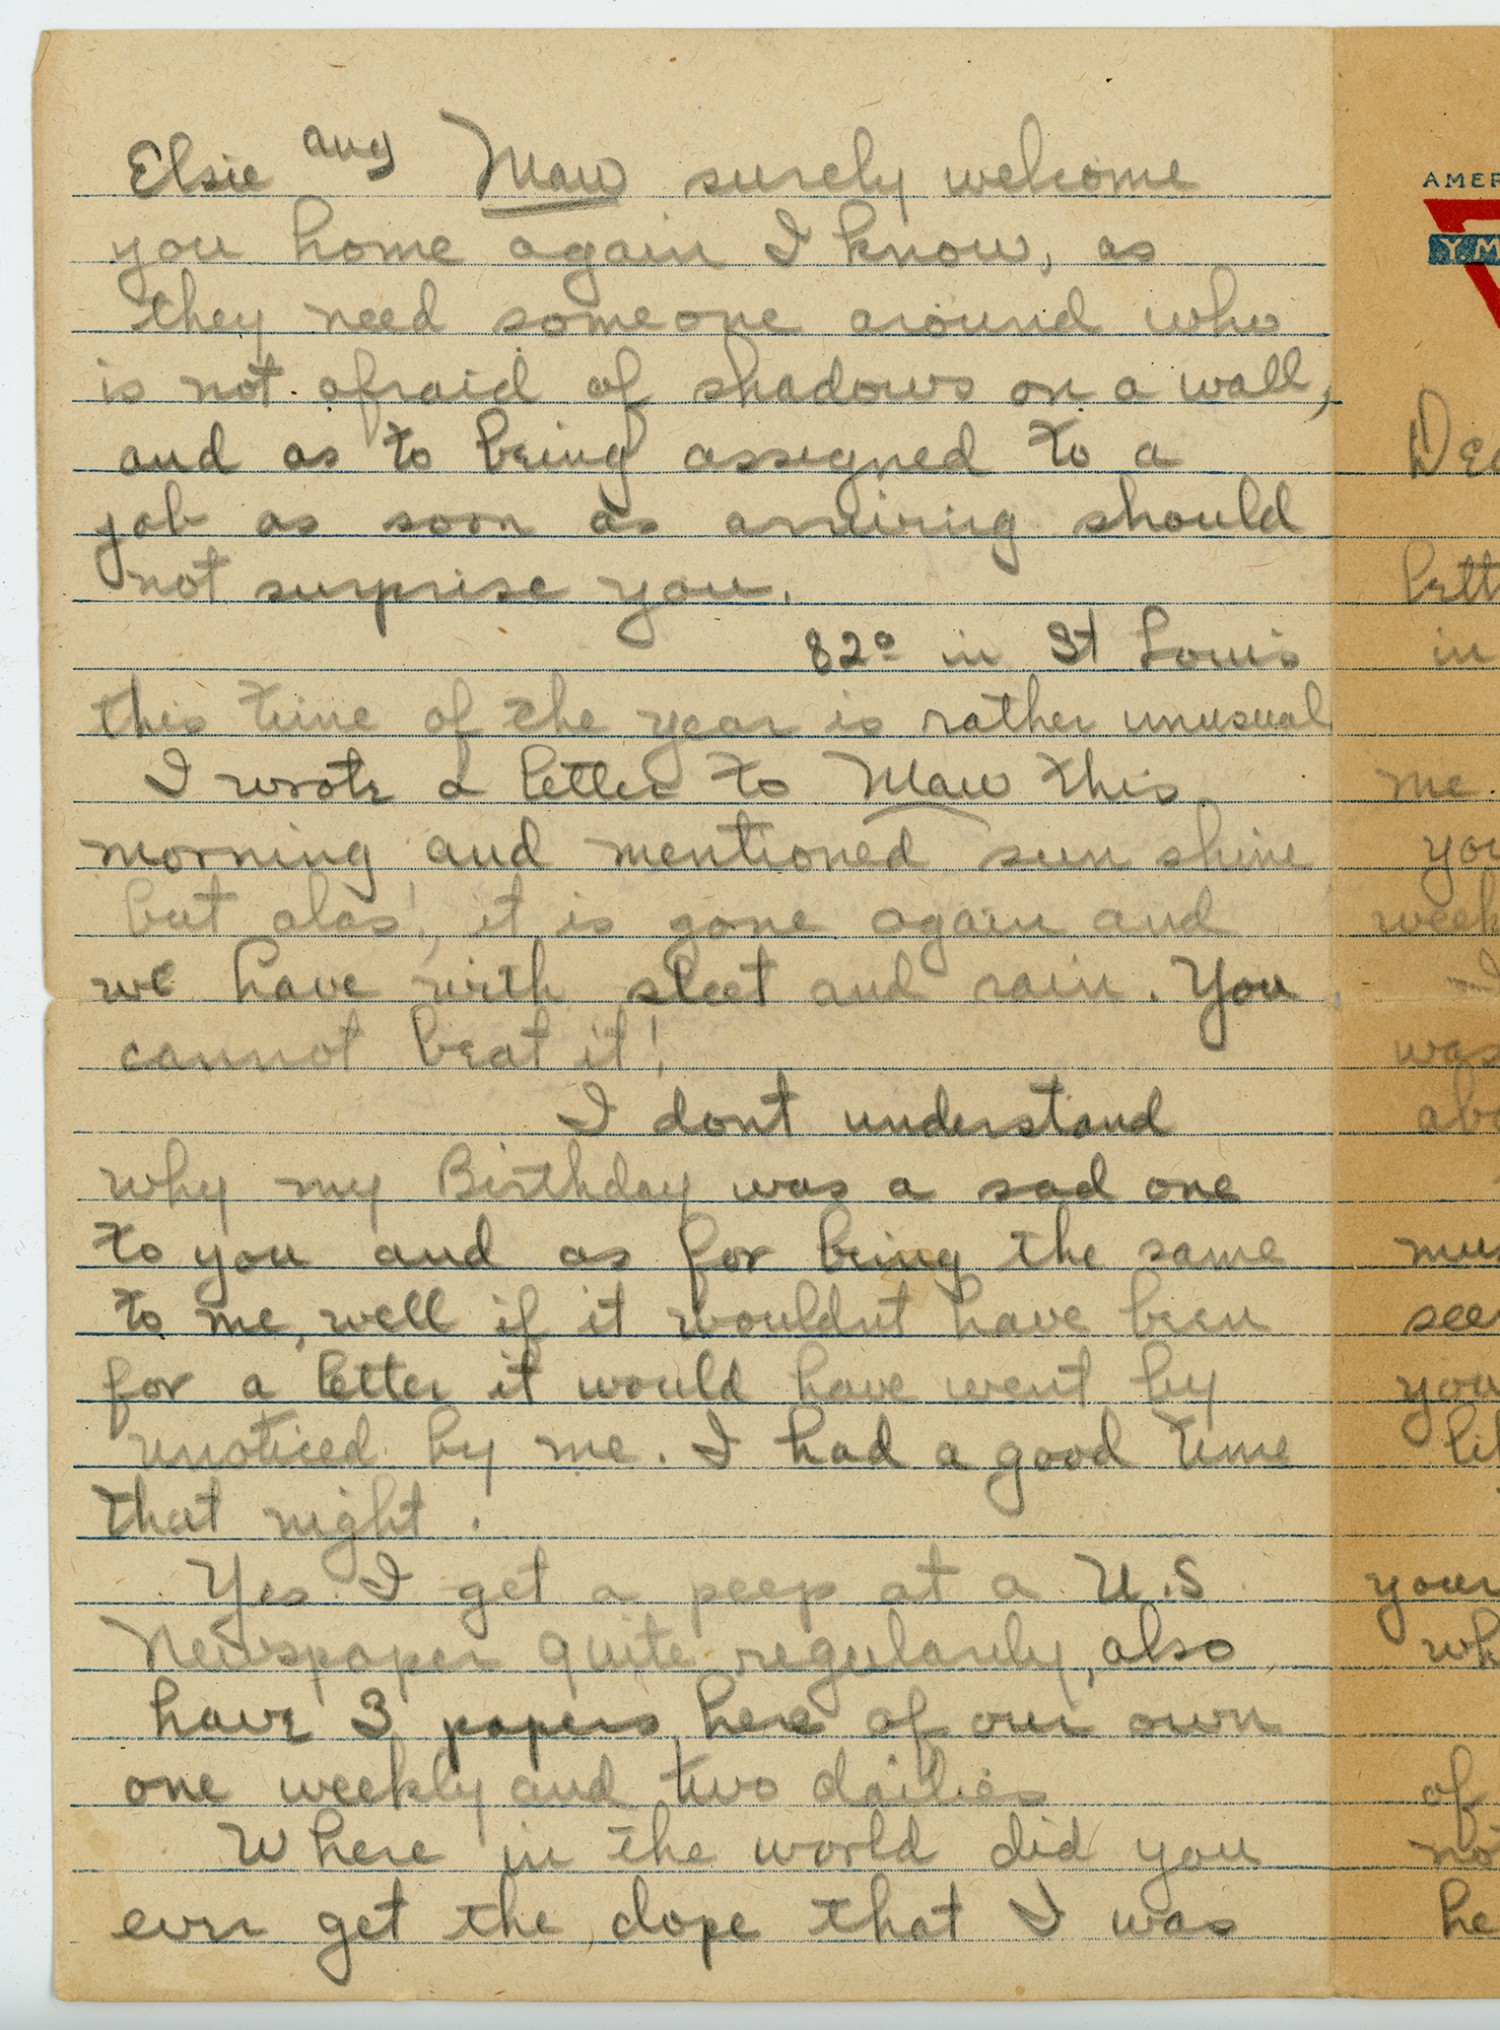 Elsie and Maw surely welcome
you home again I know, as
they need someone around who
is not afraid of shadows on a wall,
and as to being assigned to a
job as soon as arriving should
not surprise you.
82° in St Louis
this time of the year is rather unusual
I wrote a letter to Maw this
morning and mentioned sun shine
but alas!, it is gone again and
we have with sleet and rain. You
cannot beat it!
I dont understand
why my Birthday was a sad one
to you and as for being the same
to me, well if it wouldnt have been
for a letter it would have went by
unoticed by me. I had a good time
that night.
Yes I get a peep at a U.S
Newspaper quite regularly, also
have 3 papers here of our own
one weekly and two dailies
Where in the world did you
ever get the dope that I was
AMER
YM
Dea
lett
in
me.
you
week
was
abo
mus
see
your
lik
your
wh
of
not
he